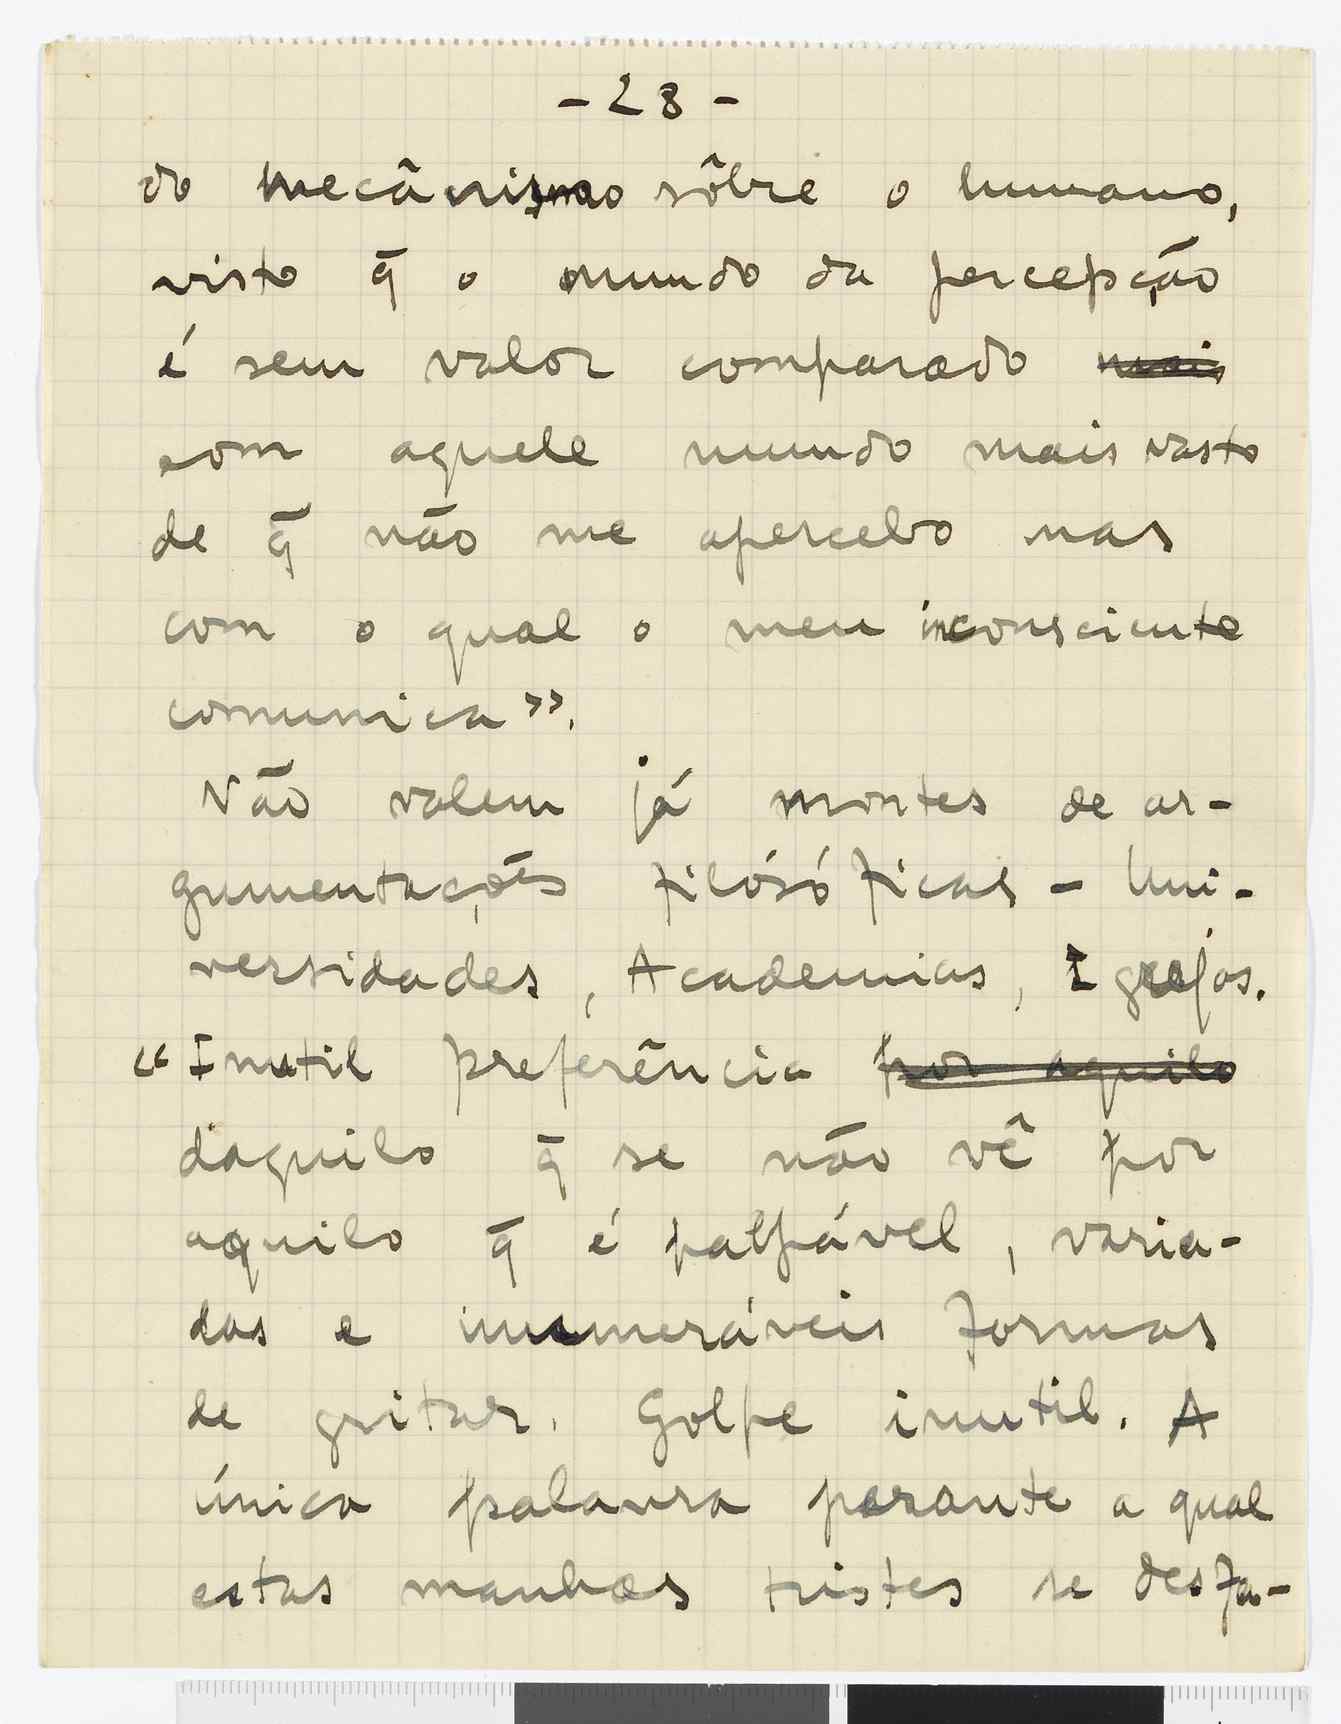 - 28 -
do mecânismo sôbre o humano,
visto q̄ o mundo da percepção
é sem valor comparado ~~mais~~
com aquele mundo mais vasto
de q̄ não me apercebo mas
com o qual o meu inconsciente
comunica”.
Não valem já montes de ar-
gumentações filósóficas – Uni-
versidades, Academias, Igrejas.
“Inutil preferência ~~por aquilo~~
daquilo q̄ se não vê por
aquilo q̄ é palpável, varia-
das e inumeráveis formas
de gritar. Golpe inutil. A
única palavra perante a qual
estas manhas tristes se desfa-